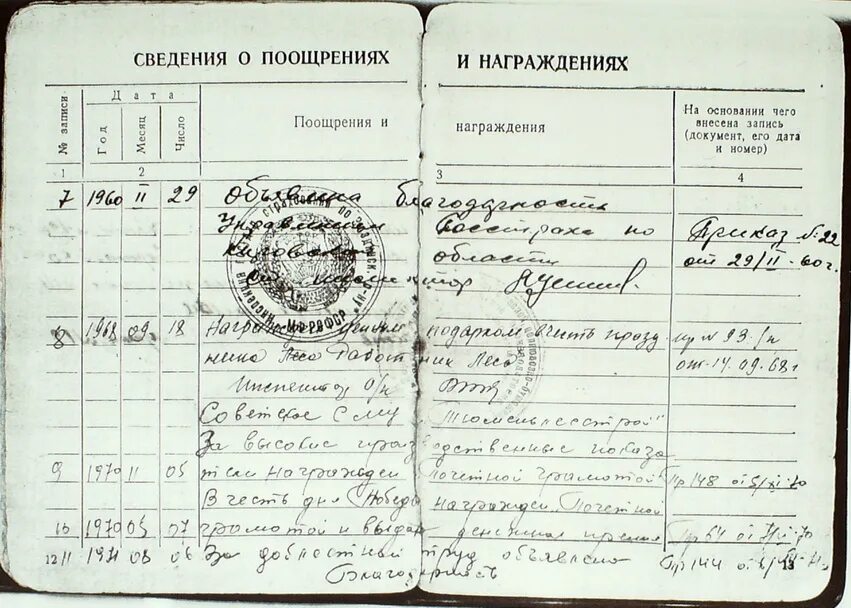 СВЕДЕНИЯ О ПООЩРЕНИЯХ И НАГРАЖДЕНИЯХ
№ записи
Дата
Год
Месяц
Число
Поощрения и награждения
На основании чего внесена запись (документ, его дата и номер)
1 2 3 4
7 1960 II 29 Объявлена благодарность
Управлением Госстраха по Приказ № 22
Кировской области от 29/II-60 г.
8 1968 09 18 Награжден подарком в честь празд пр N 93
ника Лесо Работник Лес от 14.09.68 г
Инспектор о/к
Советское СМУ "Тюменьлесстрой"
За высокие производственные показа
9 1970 11 05 тели награжден Почетной грамотой Пр 148 от 5/XI-70
В честь дня Победы награжден Почетной
10 1970 05 07 грамотой и выдана денежная премия Пр 64 от 70
11 1971 08 06 За доблестный труд объявлена Пр 144
Благодарность
12
13